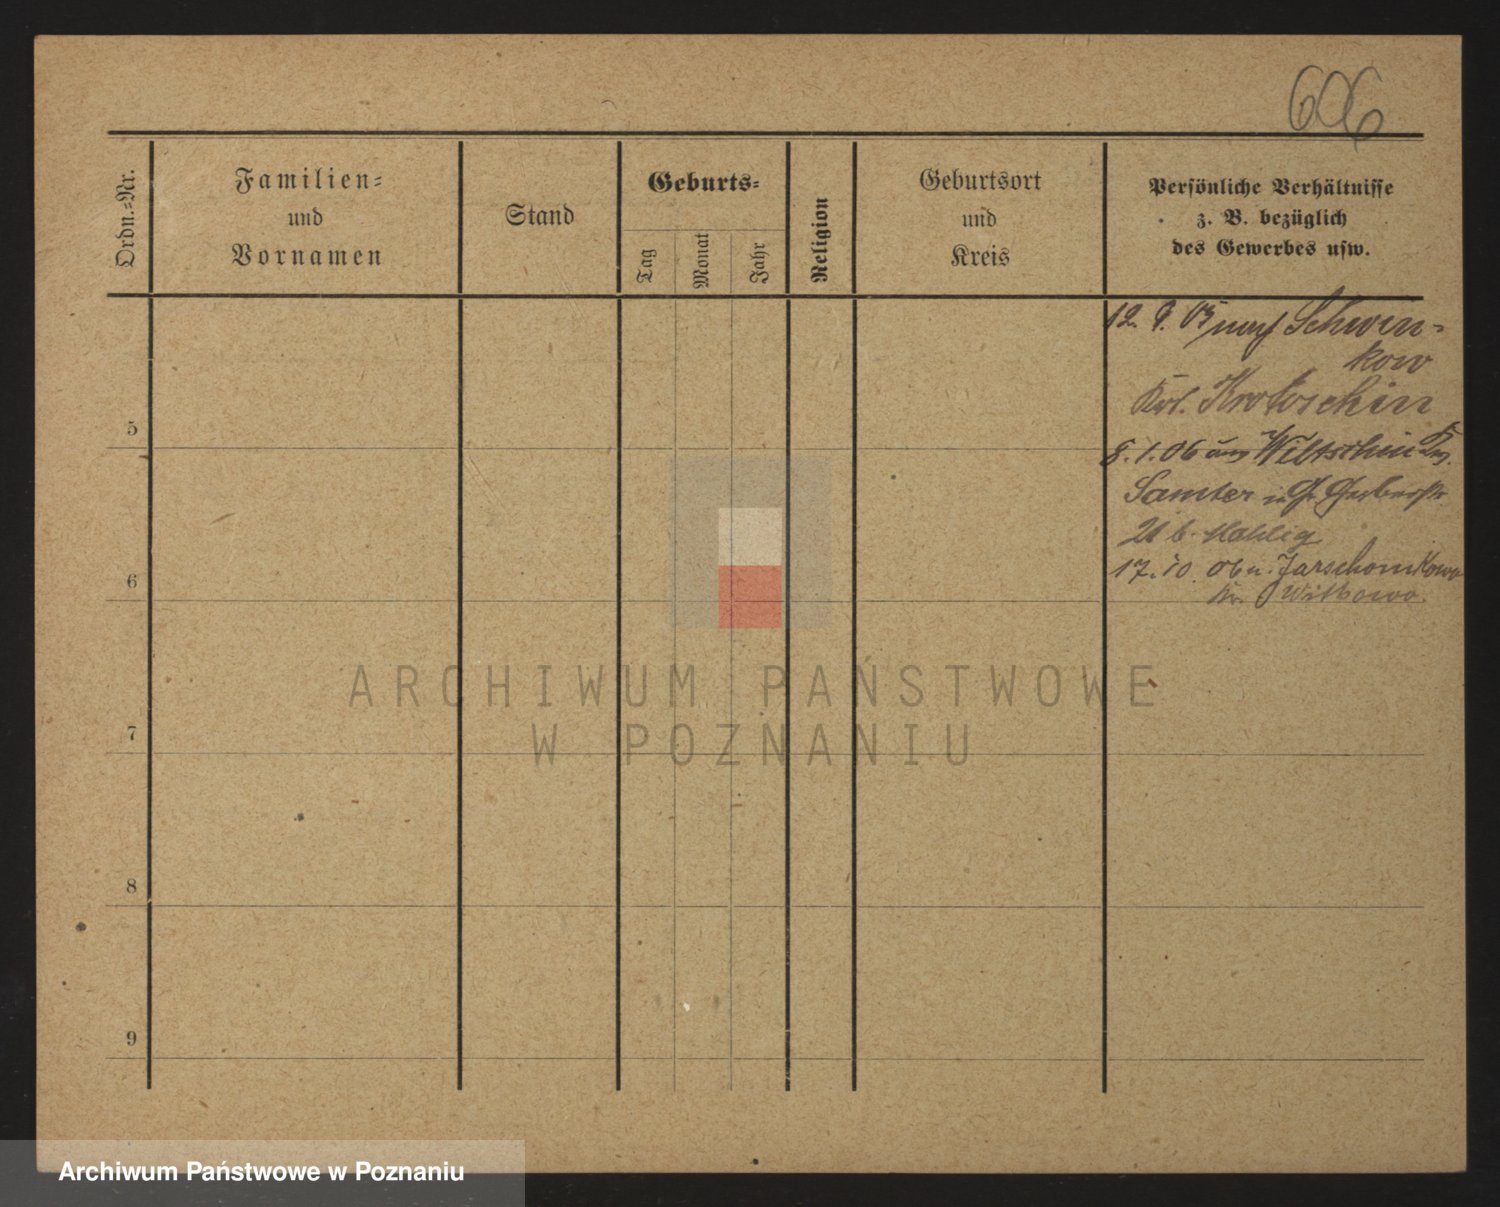 606
Ordn.-Nr.
Familien-
und
Vornamen
Stand
Geburts-
Tag
Monat
Jahr
Religion
Geburtsort
und
Kreis
Persönliche Verhältnisse
z. B. bezüglich
des Gewerbes usw.
12. 9. 05 nach Schwen-
kow
Krs. Krotoschin
5
8. 1. 06 aus Wiltschin
Samter in Gr. Gerberstr
21 b.
6
17. 10. 06 n. Jarschomkowo
Kr. Witkowo.
7
8
9
ARCHIWUM PAŃSTWOWE
W POZNANIU
Archiwum Państwowe w Poznaniu